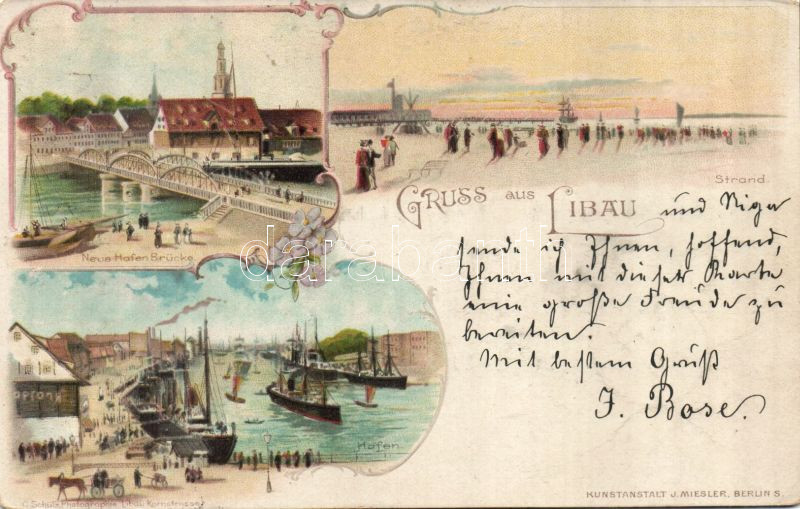 Strand.
GRUSS AUS LIBAU und Riga
sende ich Ihnen, hoffend,
Ihnen mit dieser Karte
eine große Freude zu
bereiten.
Mit bestem Gruß
J. Bose.
Neue Hafen Brücke
darabanth
Hafen.
C. Schulz, Photographie Libau, Kornstrasse
KUNSTANSTALT J. MIESLER, BERLIN S.